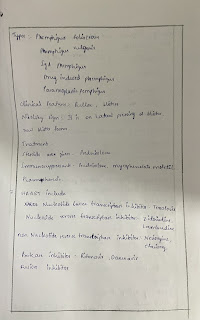 Types - Pemphigus foliaceous
Pemphigus vulgaris
IgA pemphigus
Drug induced pemphigus
Paraneoplastic pemphigus
Clinical features - Bullae, blister
Nikolsky sign - It is an lateral pressing of blister
and blister burn
Treatment -
Steroids are given - Prednisolone
Immunosuppressants - Azathioprine, mycophenolate
Plasmapheresis
HAART include
Reverse transcriptase inhibitor -
Nucleoside reverse transcriptase inhibitor - Zidovudine,
Lamivudine
non Nucleoside reverse transcriptase inhibitor - Nevirapine,
Protease inhibitor - Ritonavir,
Fusion inhibitor